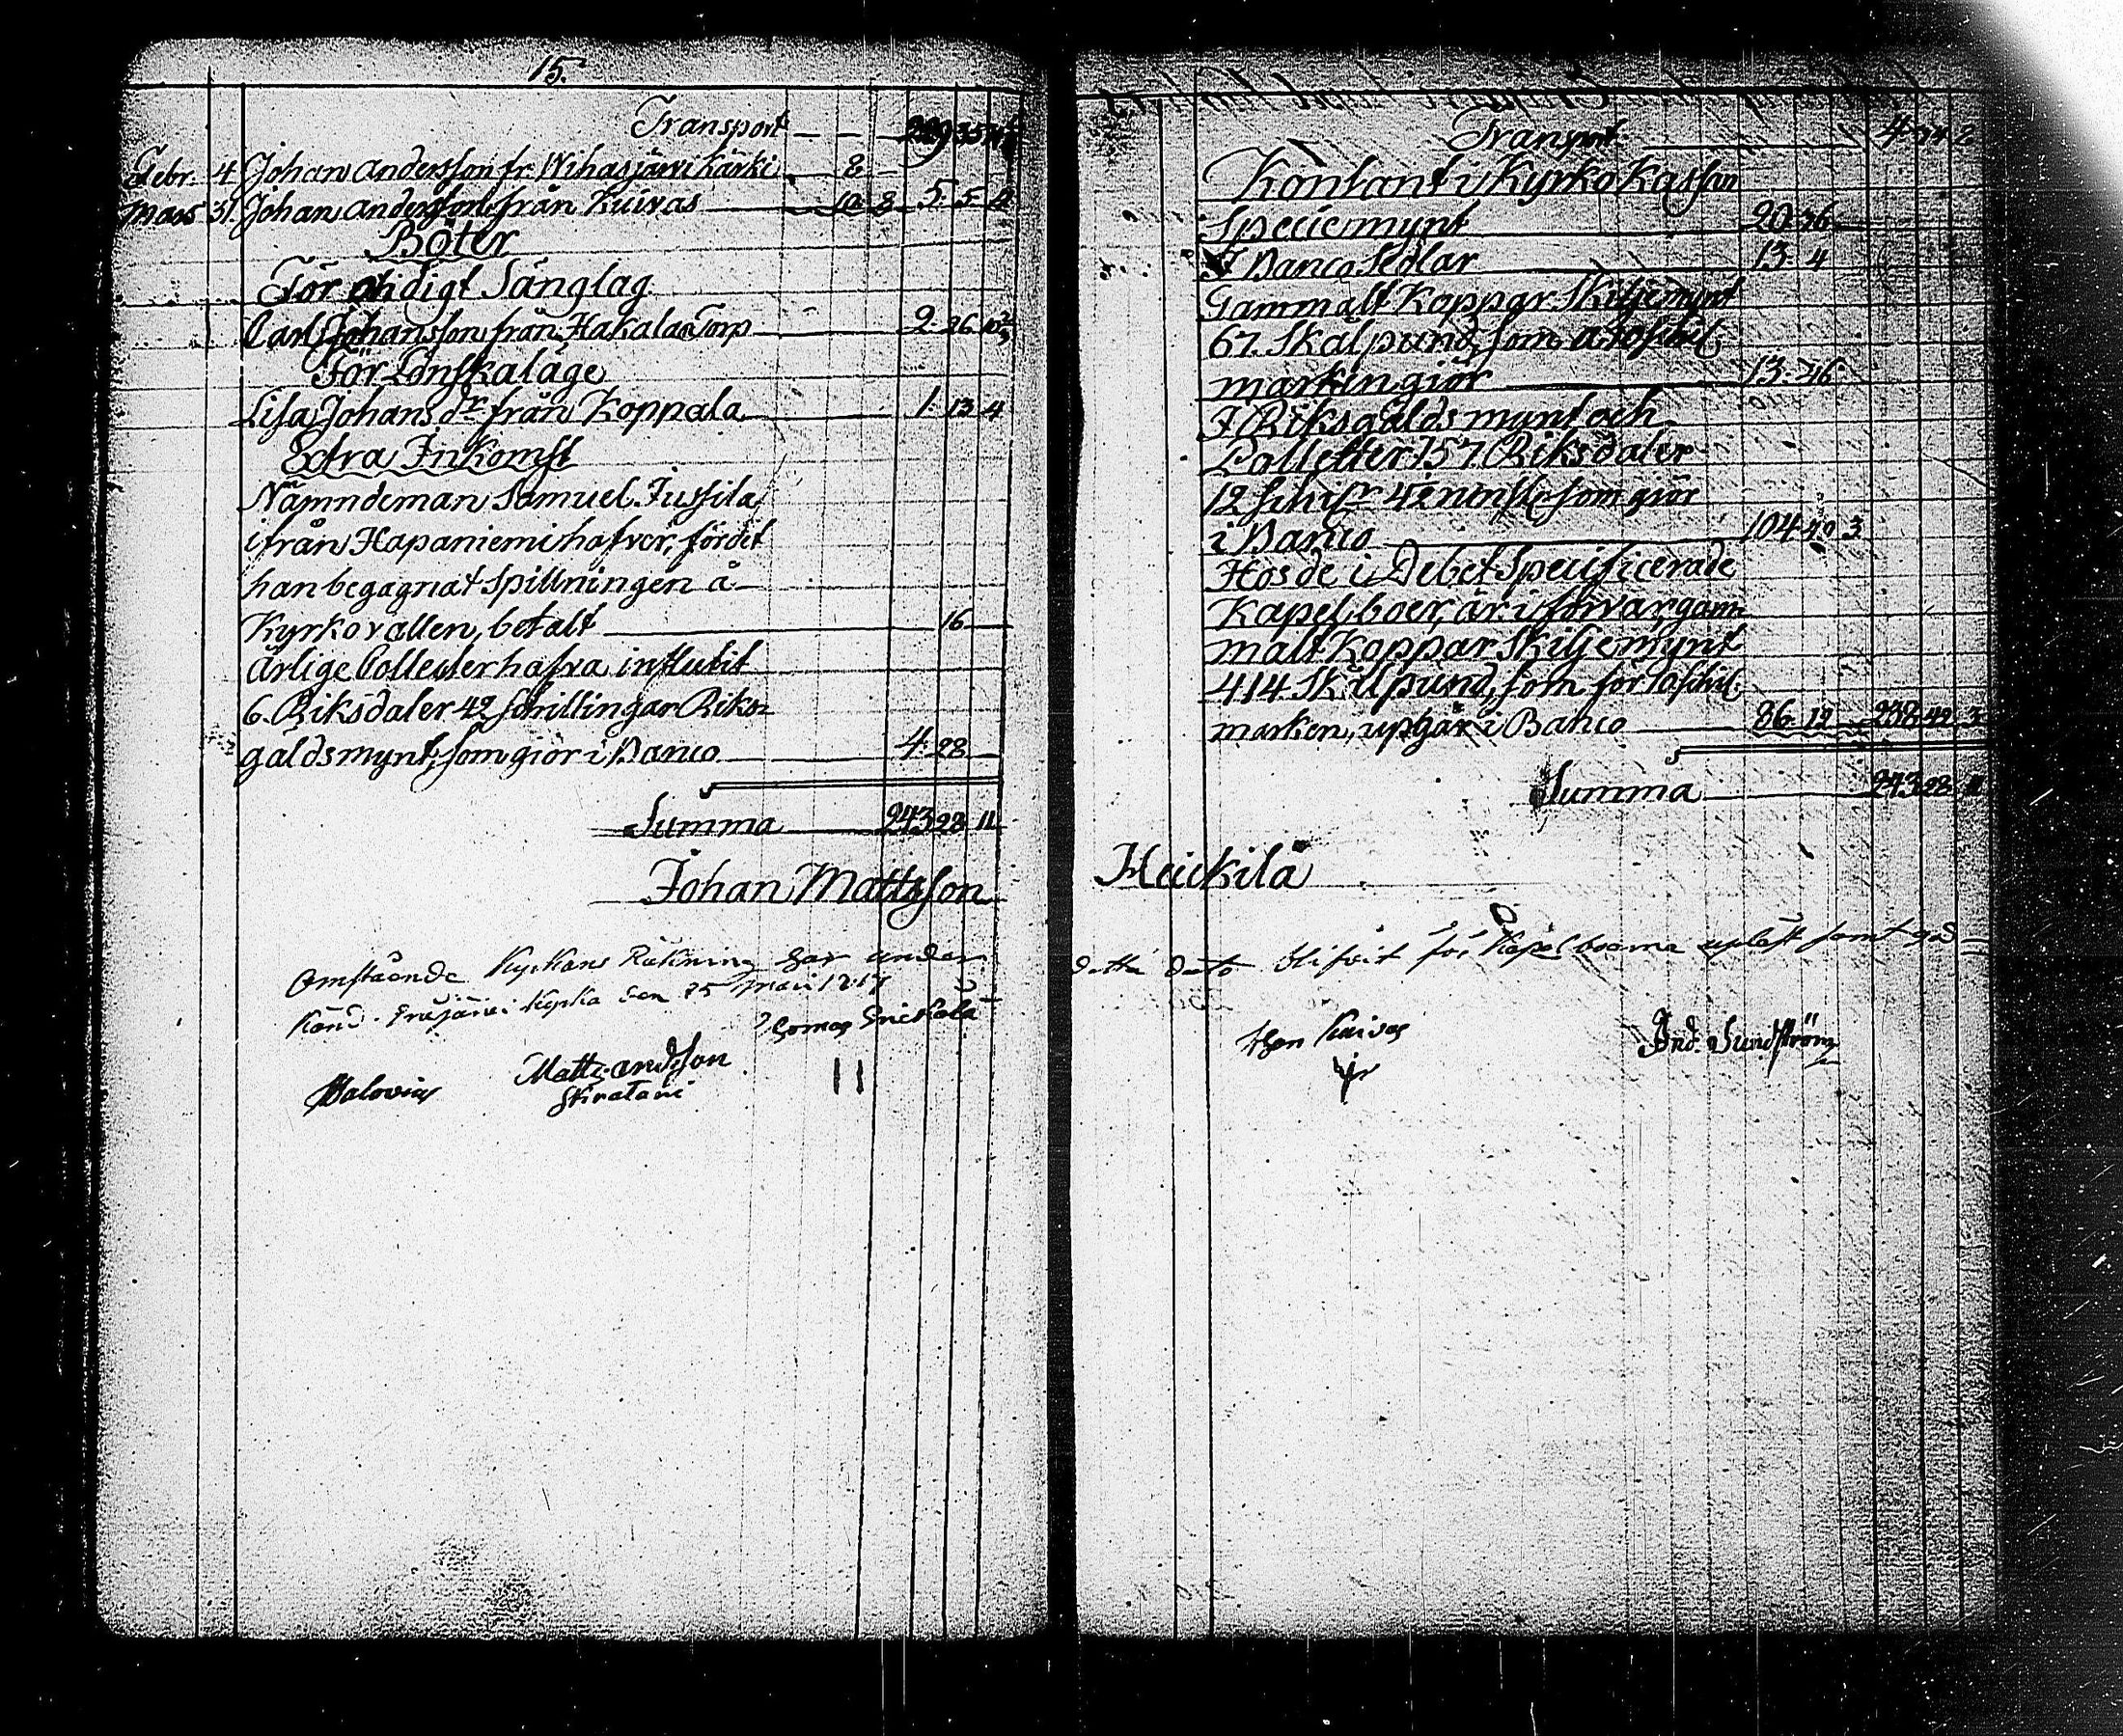 15.
Transport - - - 229 35
Febr. 4 Johan Andersson fr. Wihasjärvi Kärki 8 -
Mars 31. Johan Andersson från Kuivas 10 8 5. 5. 4
Böter
För otidigt Sänglag
Carl Johansson från Hakalan Torp 2. 26
För Lönskaläge
Lisa Johans dr från Koppala 1. 13 4
Extra Inkomst
Nämndeman Samuel Jussila
ifrån Hapaniemi hafver, för det
han begagnat Spillningen å
Kyrkovallen, betalt 16
Årlige Collecter hafva influtit
6. Riksdaler 42 Schillingar Riks=
gäldsmynt, som giör i Banco 4. 28
Summa 243 28 11
Johan Mattsson
Omstående Kyrkans Räkning har under
känd. i Kyrka den 25 Maii 1817
Thomas
Matts Andsson
Transport 4 34 2
Kontant i Kyrko Kassan
Speciemynt 20. 36
I Banco Sedlar 13. 4
Gammalt Koppar Skiljemynt
67. Skålpund, som a 10 schil.
marken giör 13. 46
I Riksgälds mynt och
Polletter 157. Riksdaler
12 schilr 4 runst. som giör
i Banco 104. 40 3
Hos de i Debet Specificerade
Kapelboer, är i förvar, gam=
malt Koppar Skiljemynt
414 Skålpund, som för 10 schil.
marken, upgår i Banco 86. 12 238. 42 3
Summa 243 28 11
Heickilä
detta dato blifvit för Kapelboerna upläst samt god=
Kuivas
And. Sundström